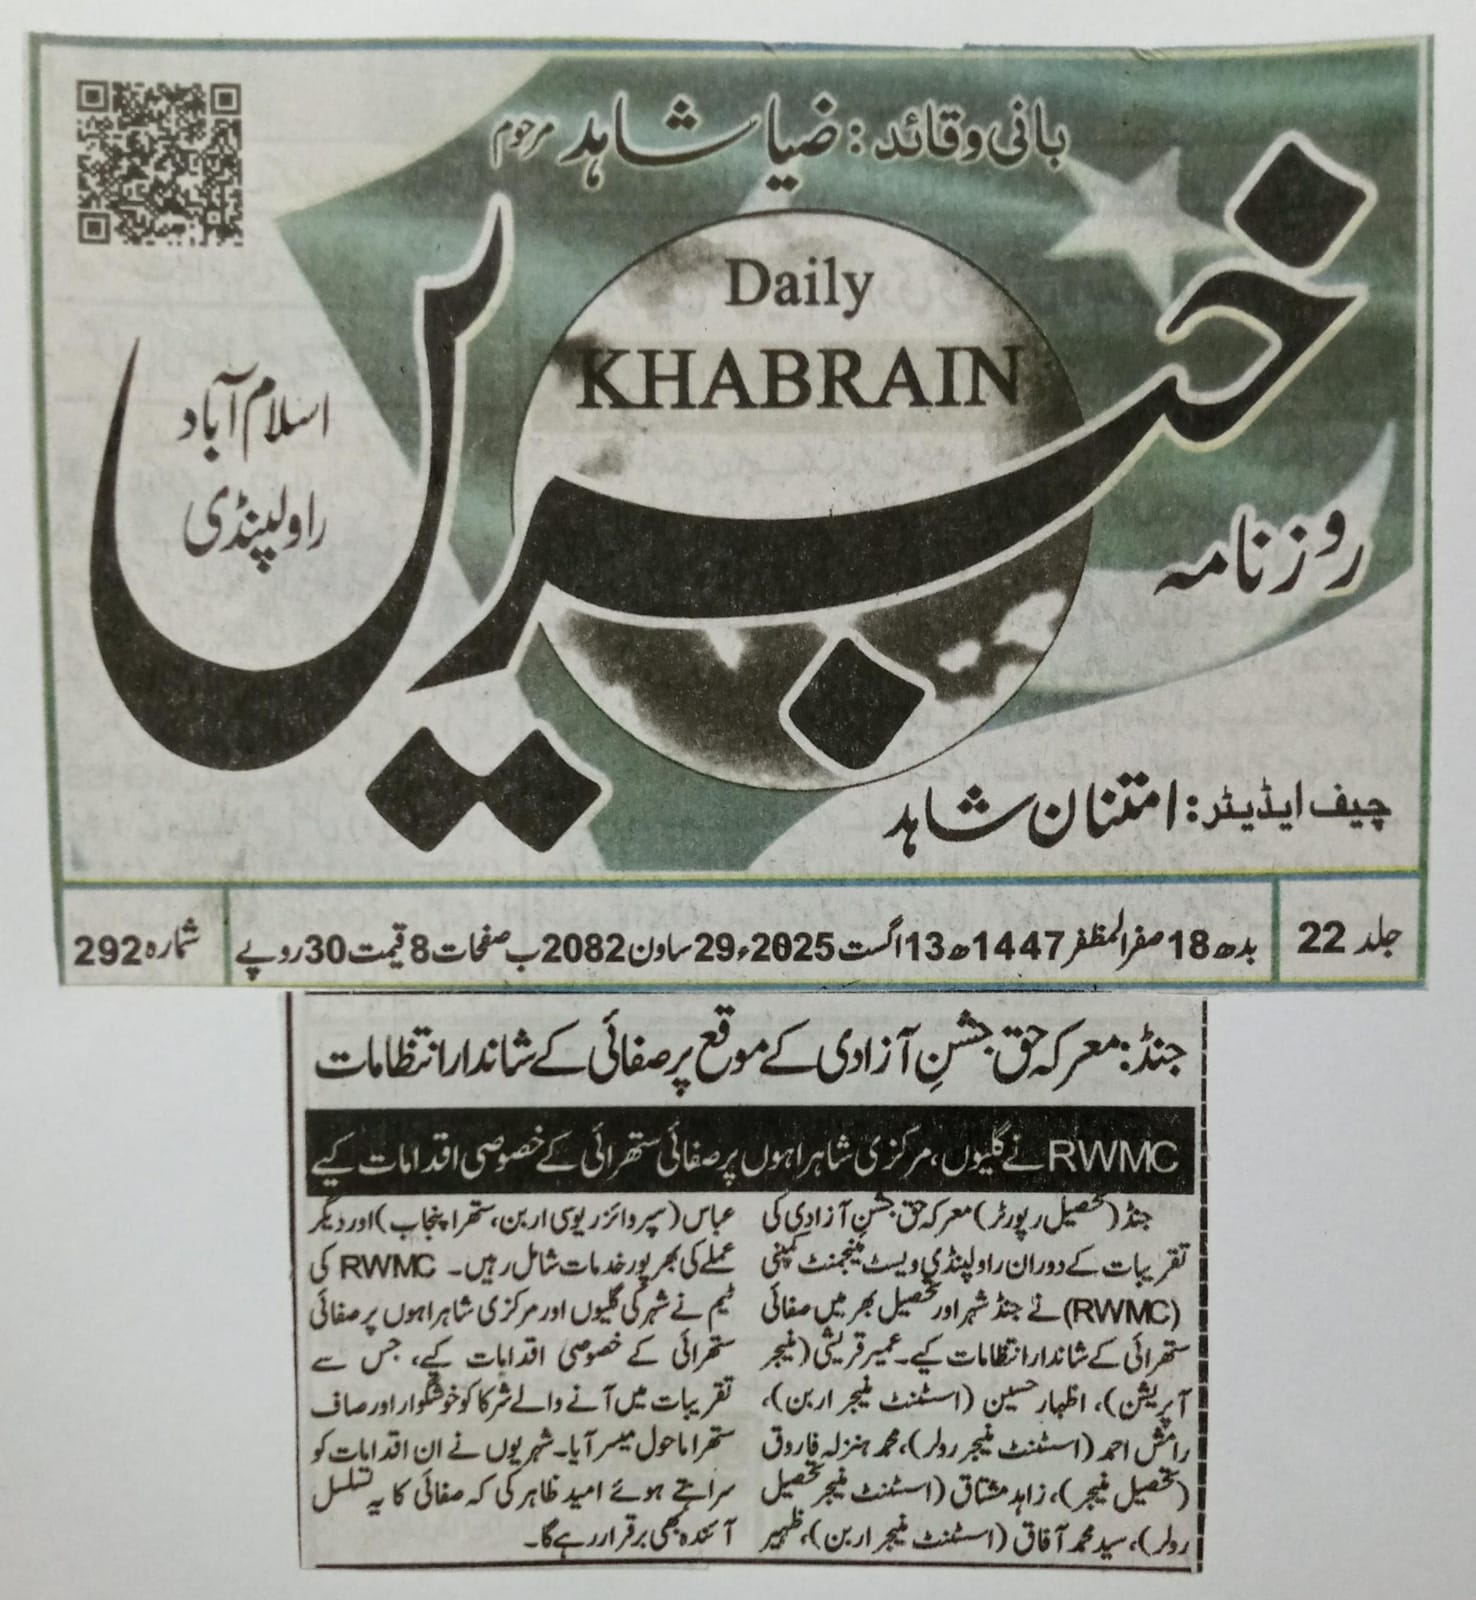 بانی و قائد: ضیا شاہد مرحوم
Daily
KHABRAIN
روزنامہ
خبریں
اسلام آباد
راولپنڈی
چیف ایڈیٹر: امتنان شاہد
جلد 22
بدھ 18 صفر المظفر 1447ھ 13 اگست 2025ء 29 ساون 2082 ب صفحات 8 قیمت 30 روپے
شمارہ 292
جنڈ: معرکہ حق جشنِ آزادی کے موقع پر صفائی کے شاندار انتظامات
RWMC نے گلیوں، مرکزی شاہراہوں پر صفائی ستھرائی کے خصوصی اقدامات کیے
جنڈ (تحصیل رپورٹر) معرکہ حق جشنِ آزادی کی
تقریبات کے دوران راولپنڈی ویسٹ مینجمنٹ کمپنی
(RWMC) نے جنڈ شہر اور تحصیل بھر میں صفائی
ستھرائی کے شاندار انتظامات کیے۔ عمیر قریشی (منیجر
آپریشن)، اظہار حسین (اسسٹنٹ منیجر اربن)،
رامش احمد (اسسٹنٹ منیجر رولر)، محمد ہنزلہ فاروق
(تحصیل منیجر)، زاہد مشتاق (اسسٹنٹ منیجر تحصیل
رولر)، سید محمد آفاق (اسسٹنٹ منیجر اربن)، ظہیر
عباس (سپروائزر یوسی اربن، ستھرا پنجاب) اور دیگر
عملے کی بھرپور خدمات شامل رہیں۔ RWMC کی
ٹیم نے شہر کی گلیوں اور مرکزی شاہراہوں پر صفائی
ستھرائی کے خصوصی اقدامات کیے، جس سے
تقریبات میں آنے والے شرکا کو خوشگوار اور صاف
ستھرا ماحول میسر آیا۔ شہریوں نے ان اقدامات کو
سراہتے ہوئے امید ظاہر کی کہ صفائی کا یہ تسلسل
آئندہ بھی برقرار رہے گا۔